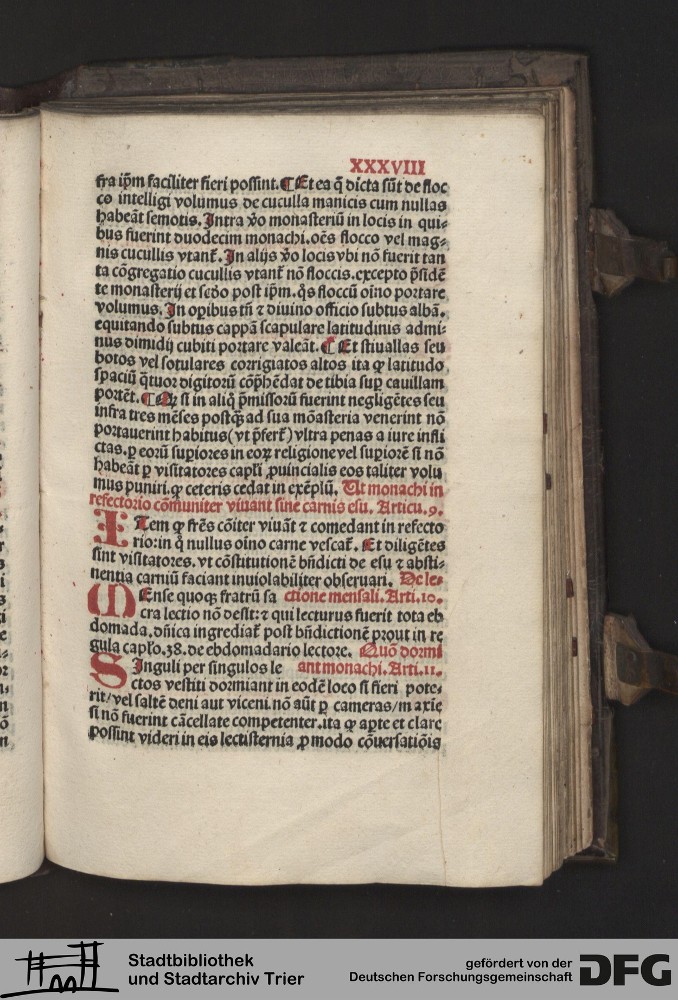 XXXVIII
fra ip̄m faciliter fieri possint. ¶ Et ea q̄ dicta sūt de floc
co intelligi volumus de cuculla manicis cum nullas
habeāt semotis. Intra v̄o monasteriū in locis in qui⸗
bus fuerint duodecim monachi. oēs flocco vel mag⸗
nis cucullis vtant᷑. In alijs v̄o locis vbi nō fuerit tan
ta cōgregatio cucullis vtant᷑ nō floccis. excepto p̄sidē
te monasterij et scd̄o post ip̄m. q̄s floccū oīno portare
volumus. In oꝑibus tn̄ ⁊ diuino officio subtus albā.
equitando subtus cappā scapulare latitudinis admi⸗
nus dimidij cubiti portare valeāt. ¶ Et stiuallas seu
botos vel sotulares corrigiatos altos ita ꝙ latitudo
spaciū q̄tuor digitorū cōp̄hēdat de tibia suꝑ cauillam
portēt. ¶ Qꝫ si in aliq̄ p̄missorū fuerint negligētes seu
infra tres mēses postꝙ̄ ad sua mōasteria venerint nō
portauerint habitus (vt p̄fert᷑) vltra penas a iure infli
ctas. ꝑ eorū suꝑiores in eoꝝ religione vel suꝑiorē si nō
habeāt ꝑ visitatores capl̄i ꝓuincialis eos taliter volu
mus puniri. ꝙ ceteris cedat in exēplū. Ut monachi in
refectorio cōmuniter viuant sine carnis esu. Articu. 9.
ITem ꝙ fr̄es cōiter viuāt ⁊ comedant in refecto
rio: in q̄ nullus oīno carne vescat᷑. Et diligētes
sint visitatores. vt cōstitutionē bn̄dicti de esu ⁊ absti⸗
nentia carniū faciant inuiolabiliter obseruari. De le⸗
MEnse quoqꝫ fratrū sa ctione mensali. Arti. 10.
cra lectio nō desit: ⁊ qui lecturus fuerit tota eb
domada. dn̄ica ingrediat᷑ post bn̄dictionē prout in re
gula capl̄o. 38. de ebdomadario lectore. Quō dormi
SInguli per singulos le ant monachi. Arti. 11.
ctos vestiti dormiant in eodē loco si fieri pote⸗
rit/ vel saltē deni aut viceni. nō aūt ꝑ cameras/ maxīe
si nō fuerint cācellate competenter. ita ꝙ aꝑte et clare
possint videri in eis lectisternia ꝓ modo cōuersatiōis
Stadtbibliothek
und Stadtarchiv Trier
gefördert von der
Deutschen Forschungsgemeinschaft
DFG